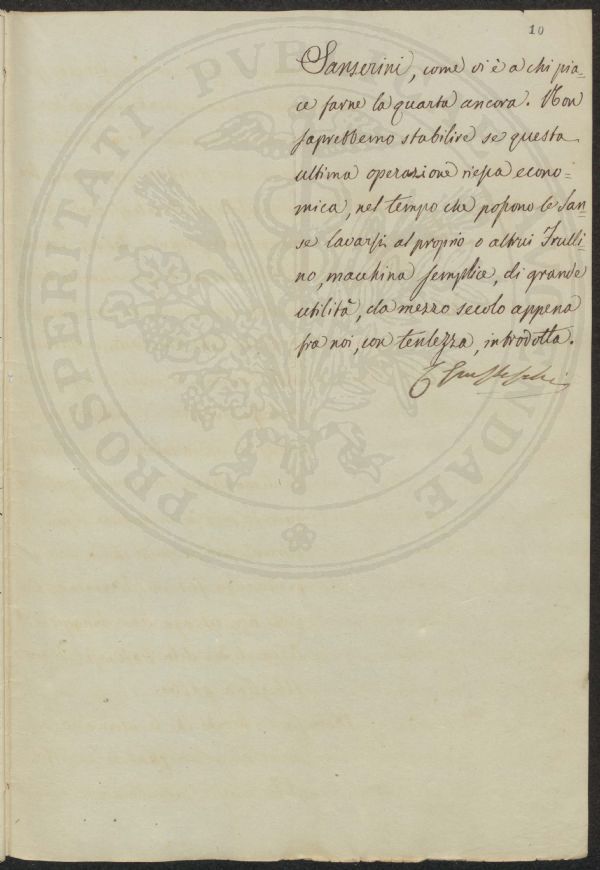 10
Sanserini, come vi è a chi pia=
ce farne la quarta ancora. Non
saprebbemo stabilire se questa
ultima operazione riesca econo=
mica, nel tempo che possono le San=
se lavarsi al proprio o altrui Frulli=
no, macchina semplice, di grande
utilità, da mezzo secolo appena
fra noi, con lentezza, introdotta.
PROSPERITATI PUBLICAE AUGENDAE